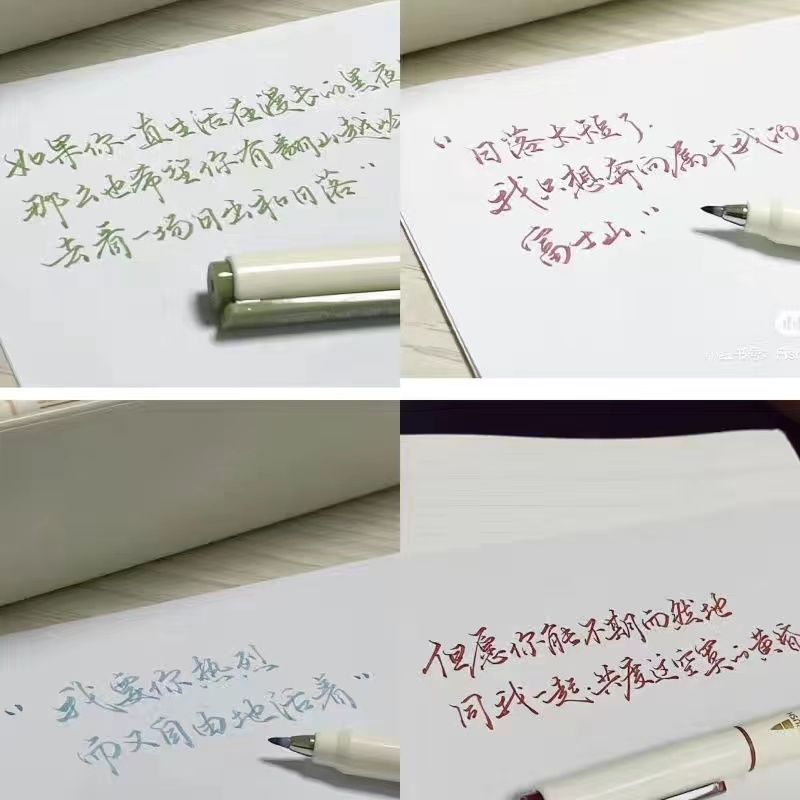 如果你一直生活在漫长的黑夜
那么也希望你有翻山越岭
去看一场日出和日落”
“日落太短了.
我只想奔向属于我的
富士山.”
“我要你热烈
而又自由地活着”
但愿你能不期而然地
同我一起,共度这空寞的黄昏